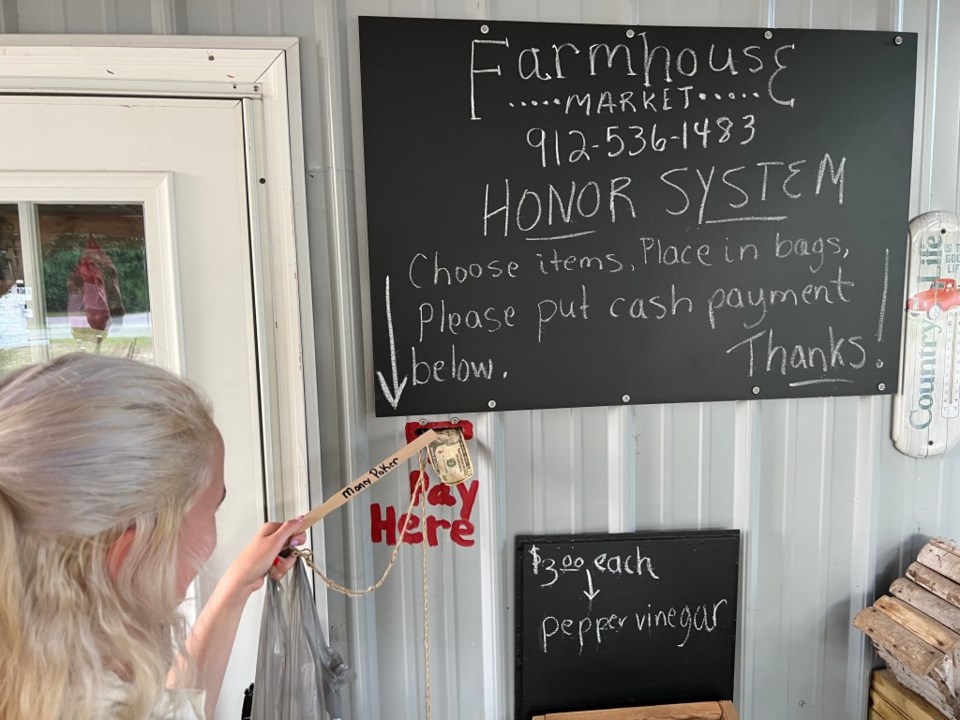 FarmhousE
.....MARKET.....
912-536-1483
HONOR SYSTEM
Choose items, Place in bags,
Please put cash payment
below.
Thanks!
Country Life
IS T
GOO
LIF
Money Poker
Pay
Here
$3.00 each
pepper vinegar